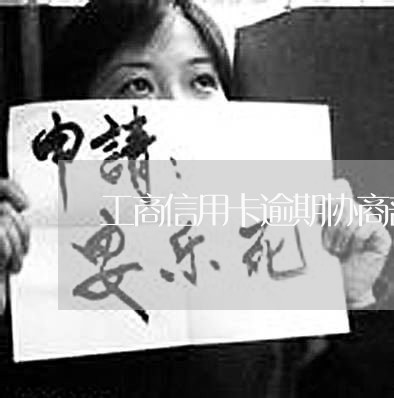 申請：
工商信用卡逾期协商
要乐死